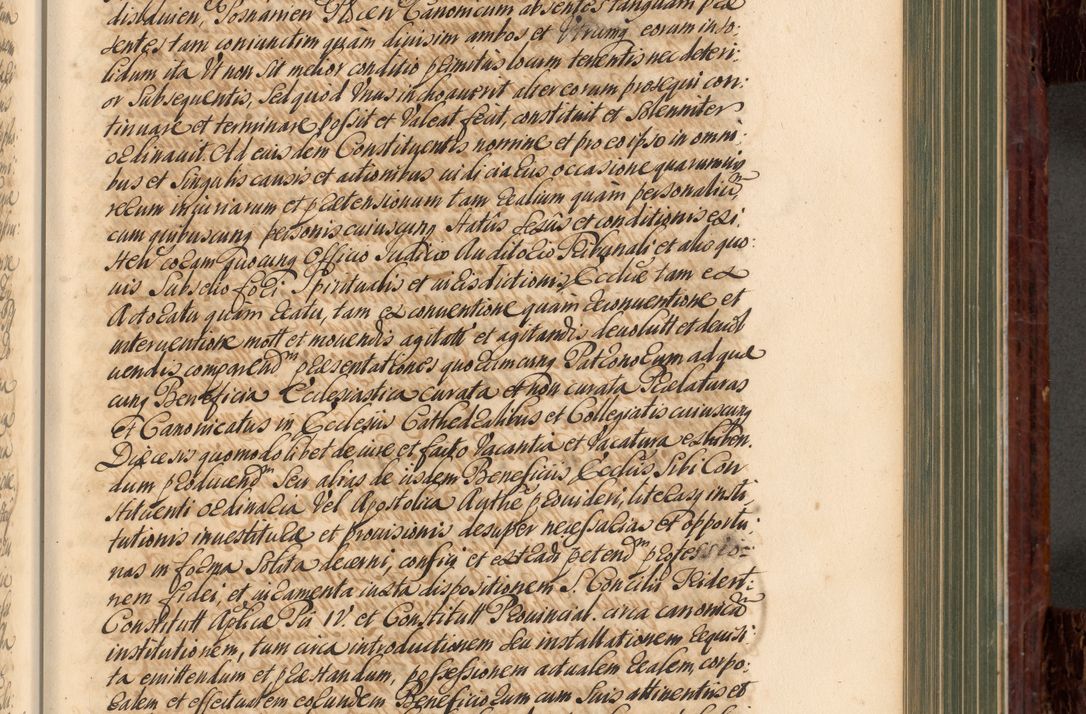 disbavien, Posnanien Pdcien Canonicum absentes tanquam prae
sentes tam coniunctim quàm divisim ambos et Utrumq eorum inso:
lidum ita Ut non sit melior conditio primitus locum tenentis nec deteri:
or Subsequentis, Sed quod Unus inchoaverit alter eorum prosequi con:
tinuare et terminare possit et Valeat fecit, constituit et Solenniter
ordinavit. Ad eius dem Constituentis nomine et pro eo ipso in omni:
bus et Singulis causis et actionibus civiliciatus occasione quarumviq
rerum iniuriarum et praetensionum tam realium quàm personaliũ
cum quibuscunq personis cuiuscunq Status sexus et conditionis exi:
sten coram quocunq Officio Iudicio Auditorio Tribunali et alio quo:
vis Subselio fori Spiritualis et iurisdictionis Ecclicae tam ex
Actoratu quàm reatu, tam ex conventione quàm reconventione et
interventione mott et movendis agitatt et agitandis devolutt et devol:
vendis comparend praesentationes quorumcunq Patronorum ad quae
cunq Beneficia Ecclesiastica curata et non curata Praelaturas
et Canonicatus in Ecclesiis Cathedralibus et Collegiatis cuiuscunq
Dioecesis quomodolibet de iure et facto Vacantia et Vacatura exhiben:
dum producend Seu alias de iisdem Beneficiis Eccliis Sibi Con
stituenti ordinaria Vel Apostolica Aucthe provideri, literasq insti
tutionis investiturae et provisionis desuper necessarias et opportu:
nas in forma Solita decerni, confici et extradi petend professio:
nem fidei, et iuramenta iuxta dispositionem S. Concilii Trident:
Constitutt Aplicae Pii IV. et Constitutt Provincial. circa canonicã
institutionem, tum circa introductionem Seu installationem requisi:
ta emittendum et praestandum, possessionem actualem realem, corpo:
ralem et effectualem eorundem Beneficiorum cum Suis attinentiis et